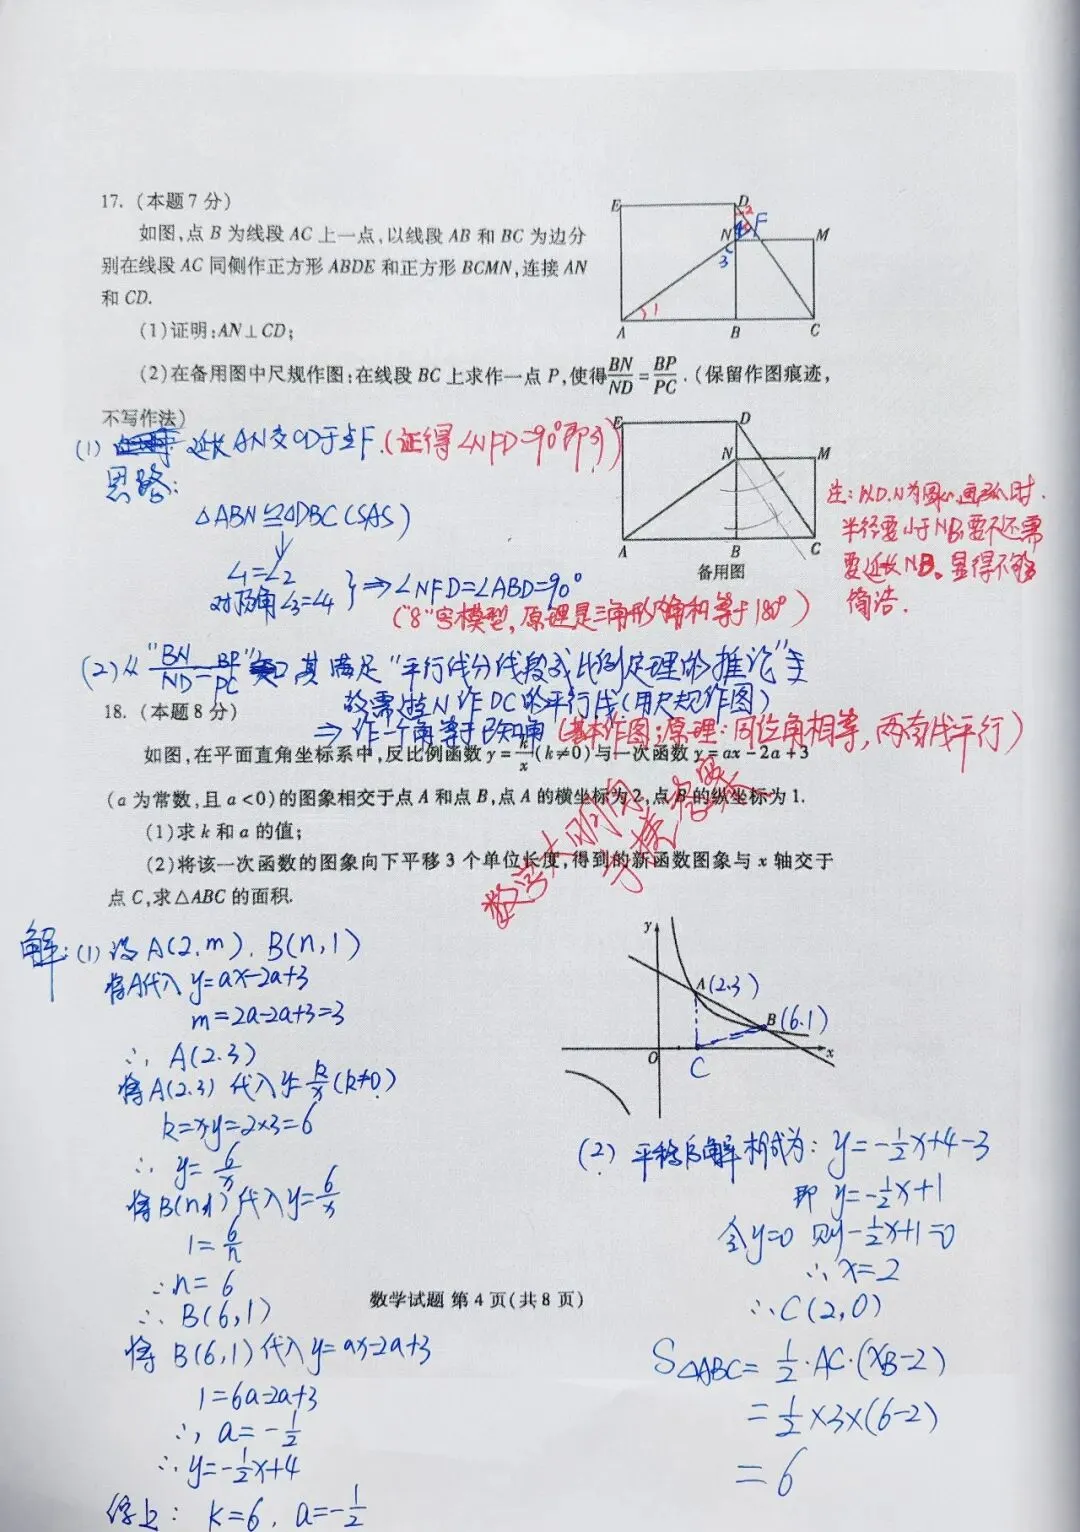 17. (本题7分)
如图,点 B 为线段 AC 上一点,以线段 AB 和 BC 为边分
别在线段 AC 同侧作正方形 ABDE 和正方形 BCMN,连接 AN
和 CD.
(1)证明:AN⊥CD;
(2)在备用图中尺规作图:在线段 BC 上求作一点 P,使得BN/ND=BP/PC.(保留作图痕迹,
不写作法)
E D 2 4 F N M 3 1 A B C
E D N M A B C
备用图
(1) 延长AN交CD于点F.(证得∠NFD=90°即可)
思路:
△ABN≌△DBC(SAS)
∠1=∠2
对顶角∠3=∠4 } ⇒∠NFD=∠ABD=90°
("8"字模型,原理是三角形内角和等于180°)
注:以D.N为圆心,画弧时.
半径要小于NB,要不还需
要延长NB。显得不够
简洁.
(2)从"BN/ND=BP/PC" 其满足"平行线分线段成比例定理的推论"
故需过N作DC的平行线(用尺规作图)
⇒作一个角等于已知角(基本作图;原理:同位角相等,两直线平行)
18. (本题8分)
如图,在平面直角坐标系中,反比例函数 y=k/x(k≠0)与一次函数 y=ax-2a+3
(a 为常数,且 a<0)的图象相交于点 A 和点 B,点 A 的横坐标为2,点 B 的纵坐标为 1.
(1)求 k 和 a 的值;
(2)将该一次函数的图象向下平移 3 个单位长度,得到的新函数图象与 x 轴交于
点 C,求△ABC 的面积.
y A(2.3) B(6.1) O C x
解:(1) 设A(2,m). B(n,1)
将A代入 y=ax-2a+3
m=2a-2a+3=3
∴ A(2.3)
将A(2.3) 代入y=k/x(k≠0)
k=xy=2×3=6
∴ y=6/x
将B(n,1)代入y=6/x
1=6/n
∴n=6
∴ B(6,1)
将 B(6,1)代入y=ax-2a+3
1=6a-2a+3
∴ a=-1/2
∴ y=-1/2x+4
综上: k=6, a=-1/2
(2) 平移后解析式为: y=-1/2x+4-3
即 y=-1/2x+1
令y=0 则-1/2x+1=0
∴ x=2
∴C(2,0)
S△ABC=1/2·AC·(xB-2)
=1/2×3×(6-2)
=6
数学试题 第 4 页(共 8 页)